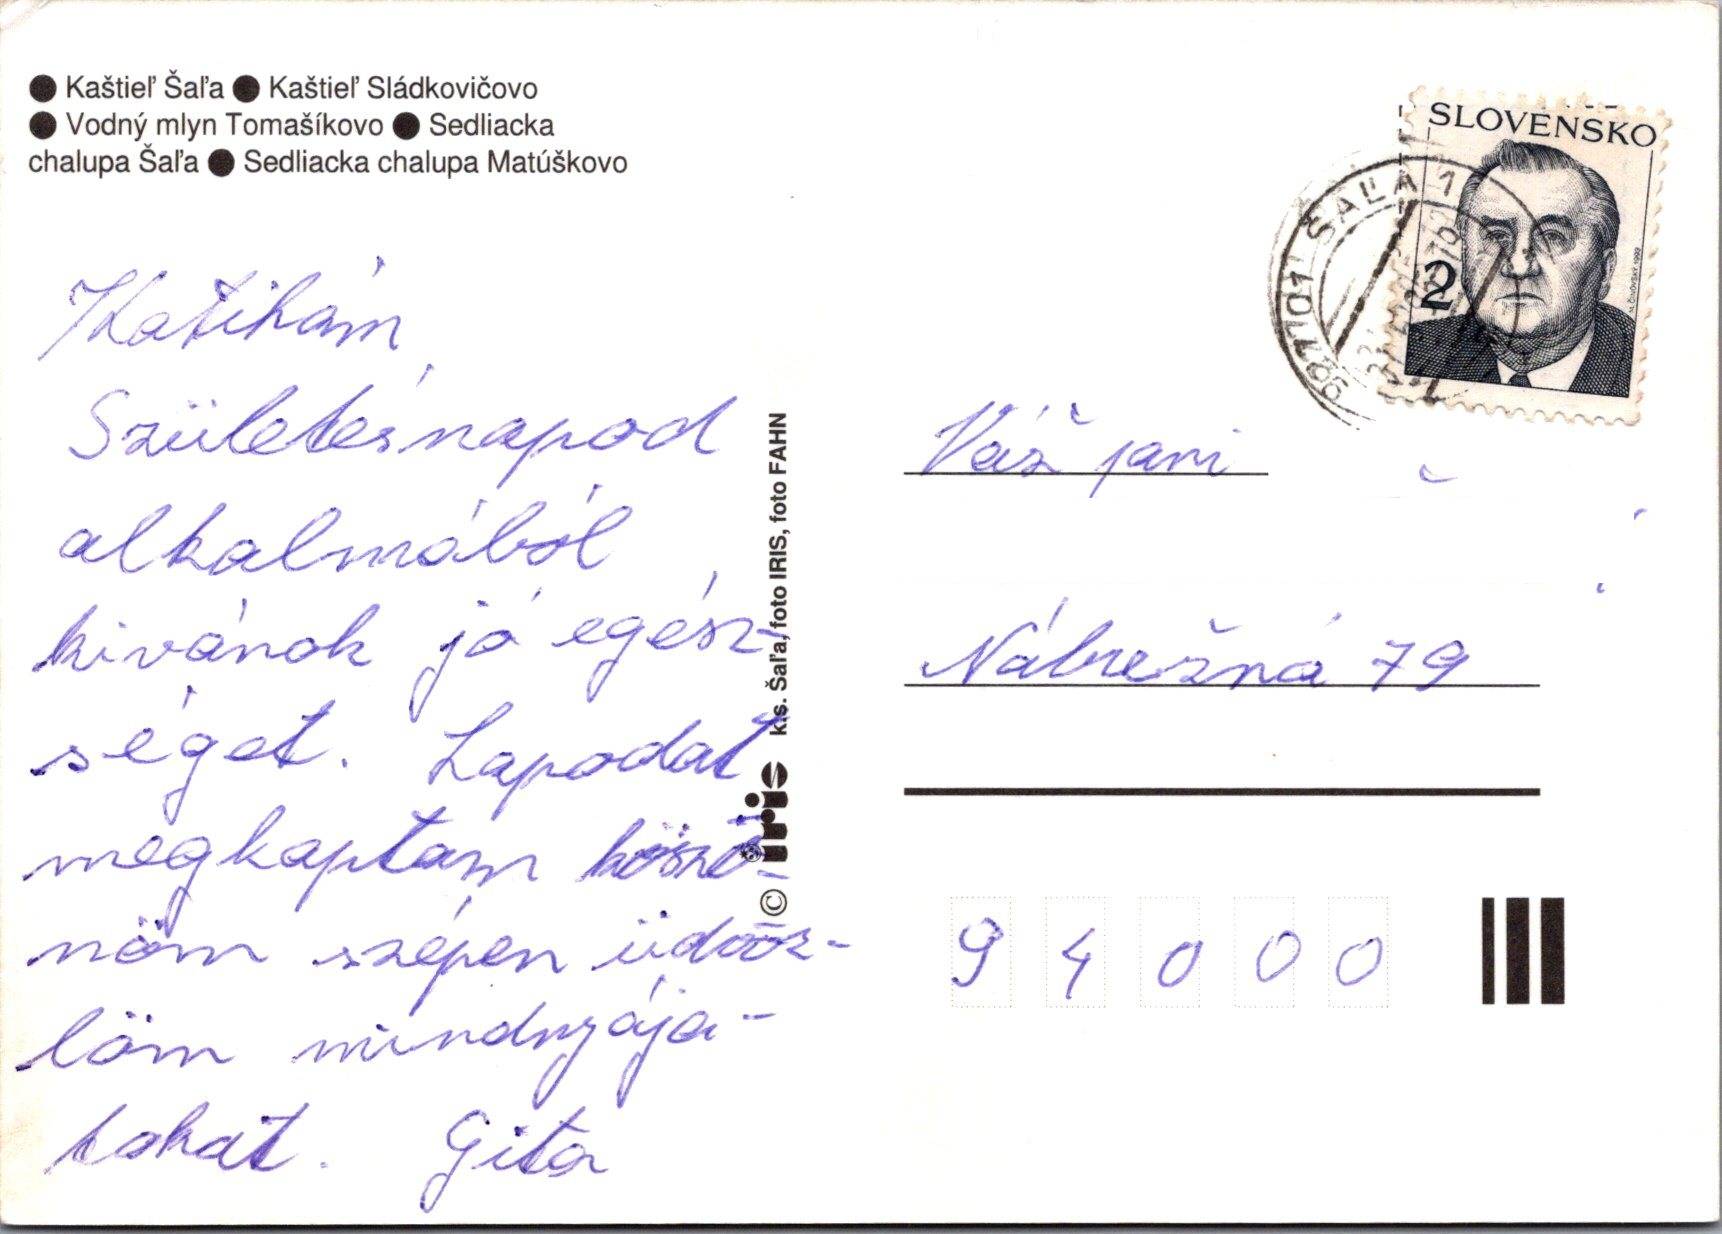 ● Kaštieľ Šaľa ● Kaštieľ Sládkovičovo
● Vodný mlyn Tomašíkovo ● Sedliacka
chalupa Šaľa ● Sedliacka chalupa Matúškovo
SLOVENSKO
2
M. ČINOVSKÝ 1993
927 01 ŠAĽA 1
Katikám
Születésnapod
alkalmából
kivánok jó egész-
séget. Lapodat
megkaptam köszö-
nöm szépen üdvöz-
löm mindnyája-
tokat. Gita
© iris k.s. Šaľa, foto IRIS, foto FAHN
Váž pani
Nábrežná 79
94000